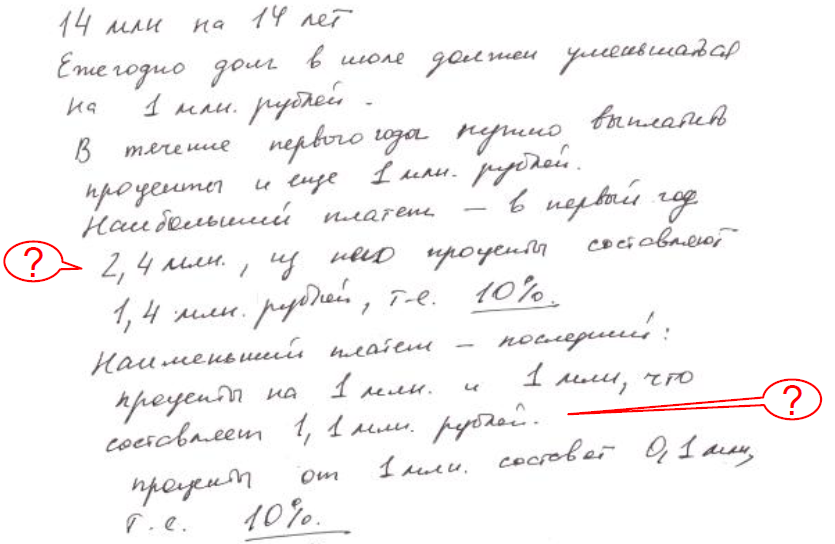 14 млн на 14 лет
Ежегодно долг в июле должен уменьшаться
на 1 млн. рублей.
В течение первого годы нужно выплатить
проценты и еще 1 млн. рублей.
Наибольший платеж – в первый год
? 2,4 млн., из него проценты составляют
1,4 млн. рублей, т.е. 10%.
Наименьший платеж – последний:
проценты на 1 млн. и 1 млн, что
составляет 1,1 млн. рублей. ?
проценты от 1 млн. составят 0,1 млн,
т.е. 10%.